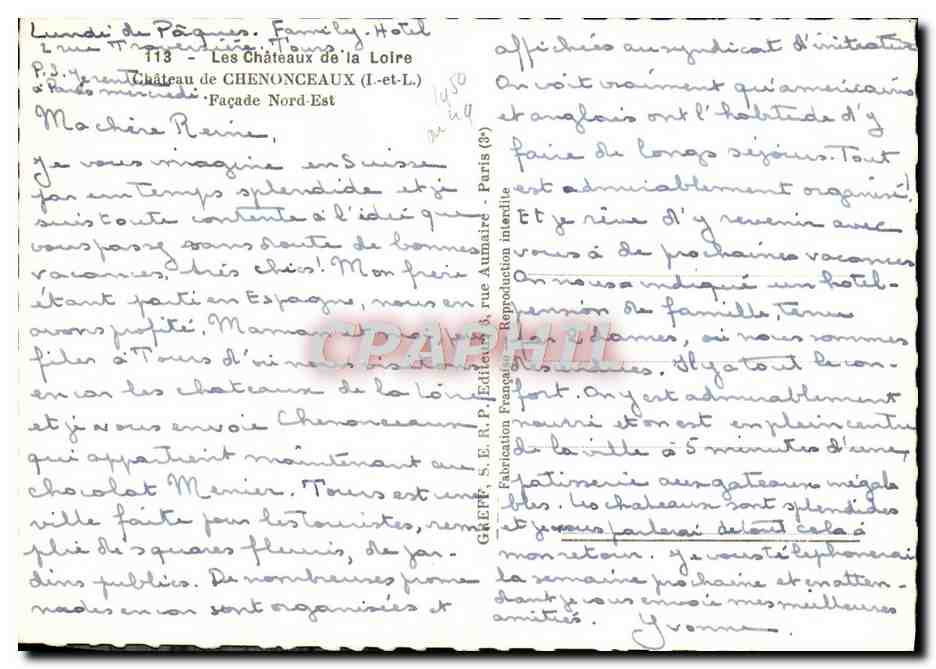 Lundi de Pâques. Family-Hotel
2 rue Traversière. Tours.
113 - Les Châteaux de la Loire
P.S. Je rentre
Château de CHENONCEAUX (I.-et-L.)
à Paris mercredi
Façade Nord-Est
1950
ou 49
Ma chère Reine,
Je vous imagine en Suisse
par un temps splendide et je
suis toute contente à l'idée que
vous passez sans doute de bonnes
vacances, très chics! Mon frère
étant parti en Espagne, nous en
avons profité, Maman
filer à Tours d'où nous
en car les chateaux de la Loire
et je vous envoie Chenonceaux
qui appartient maintenant au
chocolat Menier. Tours est une
ville faite pour les touristes, rem-
plie de squares fleuris, de jar-
dins publics. De nombreuses prome
nades en car sont organisées et
GREFF, S. E. R. P., Editeur, rue Aumaire - Paris (3e)
Fabrication Française - Reproduction interdite
CPAPHIL
affichées au syndicat d'initiative
On voit vraiment qu'américains
et anglais ont l'habitude d'y
faire de longs séjours. Tout
est admirablement organisé!
Et je rêve d'y revenir avec
vous à de prochaines vacances
On nous a indiqué un hotel-
pension de famille, tenu
par 2 dames, où nous sommes
Il y a tout le con-
fort. On y est admirablement
nourri et on est en plein centre
de la ville à 5 minutes d'une
patisserie aux gateaux inégala
bles. Les chateaux sont splendides
et je vous parlerai de tout cela à
mon retour. Je vous téléphonerai
la semaine prochaine et en atten-
dant je vous envoie mes meilleures
amitiés. Yvonne.